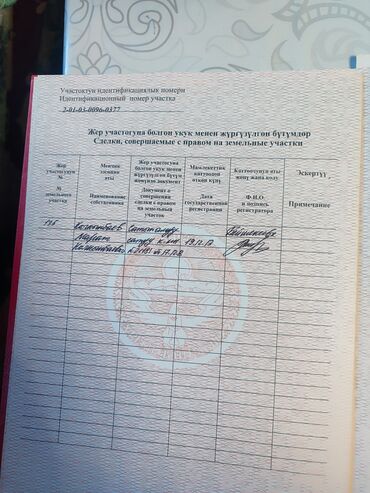 Участоктун идентификациялык номери
Идентификационный номер участка
2-01-03-0096-0377
Жер участогуна болгон укук менен жүргүзүлгөн бүтүмдөр
Сделки, совершаемые с правом на земельные участки
Жер участогунун №
Менчик ээсинин аты
Жер участогуна болгон укук менен жүргүзүлгөн бүтүм жөнүндө документ
Мамлекеттик каттоодон өткөн күнү
Каттоочунун аты жөнү жана колу
Эскертүү
№ земельного участка
Наименование собственника
Документ о совершении сделки с правом на земельный участок
Дата государственной регистрации
Ф.И.О. и подпись регистратора
Примечание
19.12.17